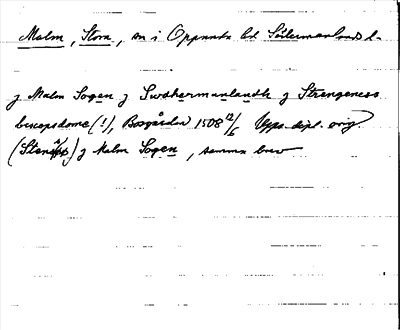 Malm, Stora, sn i Oppunda hd Södermanlands l.
j Malm Sogen j Swdhermanlandh j Strengeness
biscopsdome (!), Bosgården 1508 12/6 Upps. dipl. orig.
( ) j Malm Sogen, samma brev